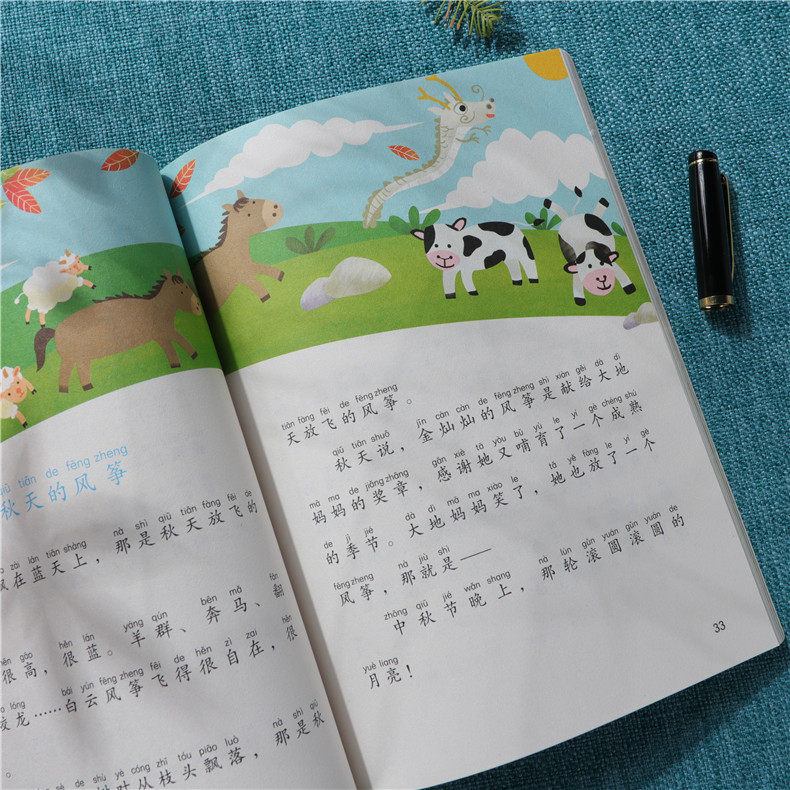 tiān de fēng zheng
秋天的风筝
zài lán tiān shàng nà shì qiū tiān fàng fēi de
在蓝天上，那是秋天放飞的
gāo hěn lán yáng qún bēn mǎ fān
很高，很蓝。羊群、奔马、翻
lóng bái yún fēng zheng fēi de hěn zì zai
龙……白云风筝飞得很自在，很
。
de shù yè cóng zhī tóu piāo luò nà shì qiū
叶从枝头飘落，那是秋
tiān fàng fēi de fēng zheng
天放飞的风筝。
qiū tiān shuō jīn càn càn de fēng zheng shì xiàn gěi dà dì
秋天说，金灿灿的风筝是献给大地
mā ma de jiǎng zhāng gǎn xiè tā yòu bǔ yù le yí gè chéng shú
妈妈的奖章，感谢她又哺育了一个成熟
de jì jié dà dì mā ma xiào le tā yě fàng le yí gè
的季节。大地妈妈笑了，她也放了一个
fēng zheng nà jiù shì
风筝，那就是——
zhōng qiū jié wǎn shang nà lún gǔn yuán gǔn yuán de
中秋节晚上，那轮滚圆滚圆的
yuè liang
月亮！
33